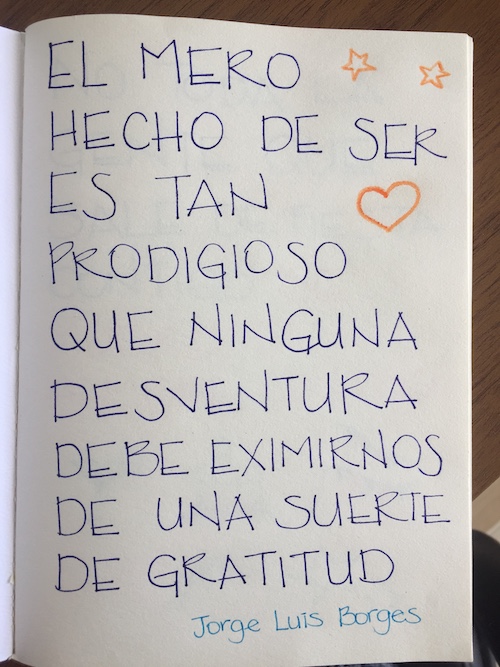 EL MERO
HECHO DE SER
ES TAN
PRODIGIOSO
QUE NINGUNA
DESVENTURA
DEBE EXIMIRNOS
DE UNA SUERTE
DE GRATITUD
Jorge Luis Borges